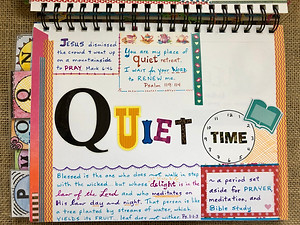 Jesus dismissed
the crowd & went up
on a mountainside
to PRAY. Mark 6:46
You are my place of
quiet retreat.
I wait for your Word
to RENEW me.
Psalm 119:114
QUIET
TIME
a period set
aside for PRAYER,
meditation, and
Bible Study
Blessed is the one who does not walk in step
with the wicked... but whose delight is in the
law of the Lord and who meditates on
His law day and night. That person is like
a tree planted by streams of water, which
YIELDS its FRUIT leaf does not wither.